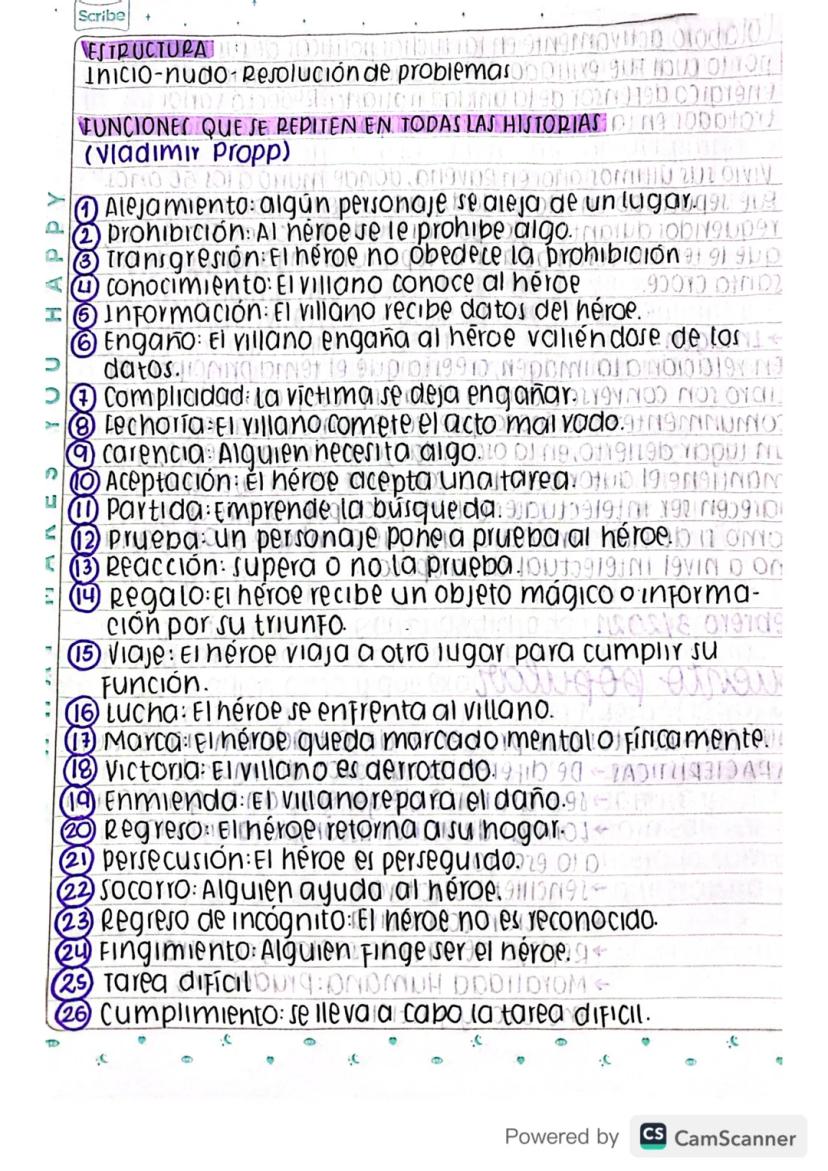 Scribe
ESTRUCTURA
Inicio-nudo-Resolución de problemas
FUNCIONES QUE SE REPITEN EN TODAS LAS HISTORIAS
(Vladimir Propp)
1 Alejamiento: algún personaje se aleja de un lugar.
2 Prohibición: Al héroe se le prohibe algo.
3 Transgresión: El héroe no obedece la prohibición
4 conocimiento: El villano conoce al héroe
5 Información: El villano recibe datos del héroe.
6 Engaño: El villano engaña al héroe valiéndose de los
datos.
7 Complicidad: La víctima se deja engañar.
8 Fechoría: El villano comete el acto malvado.
9 Carencia: Alguien necesita algo.
10 Aceptación: El héroe acepta una tarea.
11 Partida: Emprende la búsqueda.
12 Prueba: un personaje pone a prueba al héroe.
13 Reacción: supera o no la prueba.
14 Regalo: El héroe recibe un objeto mágico o informa-
ción por su triunfo.
15 Viaje: El héroe viaja a otro lugar para cumplir su
función.
16 Lucha: El héroe se enfrenta al villano.
17 Marca: El héroe queda marcado mental o físicamente.
18 Victoria: El villano es derrotado.
19 Enmienda: El villano repara el daño.
20 Regreso: El héroe retorna a su hogar.
21 Persecusión: El héroe es perseguido.
22 Socorro: Alguien ayuda al héroe.
23 Regreso de incógnito: El héroe no es reconocido.
24 Fingimiento: Alguien finge ser el héroe.
25 Tarea difícil
26 Cumplimiento: se lleva a cabo la tarea dificil.
MAKES YOU HAPPY
Powered by CS CamScanner